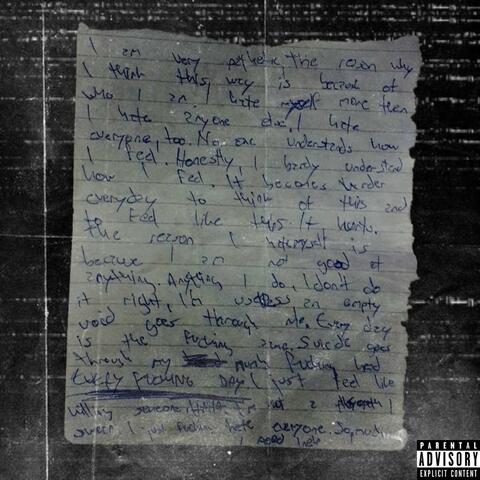 I am very pathetic, the reason why
I think this way is because of
who I am, I hate myself more then
I hate anyone else, I hate
everyone, too. No one understands how
I feel. Honestly, I barely understand
how I feel. It becomes harder
everyday to think of this and
to feel like this. It hurts.
the reason I hate myself is
because I am not good at
anything. Anything I do, I don't do
it right, I'm useless an empty
void goes through me. Every day
is the fucking same. Suicide goes
through my fucking head
EVERY FUCKING DAY, I just feel like
killing someone I'm not a
I just fuckin hate everyone. So much
I need help
PARENTAL
ADVISORY
EXPLICIT CONTENT